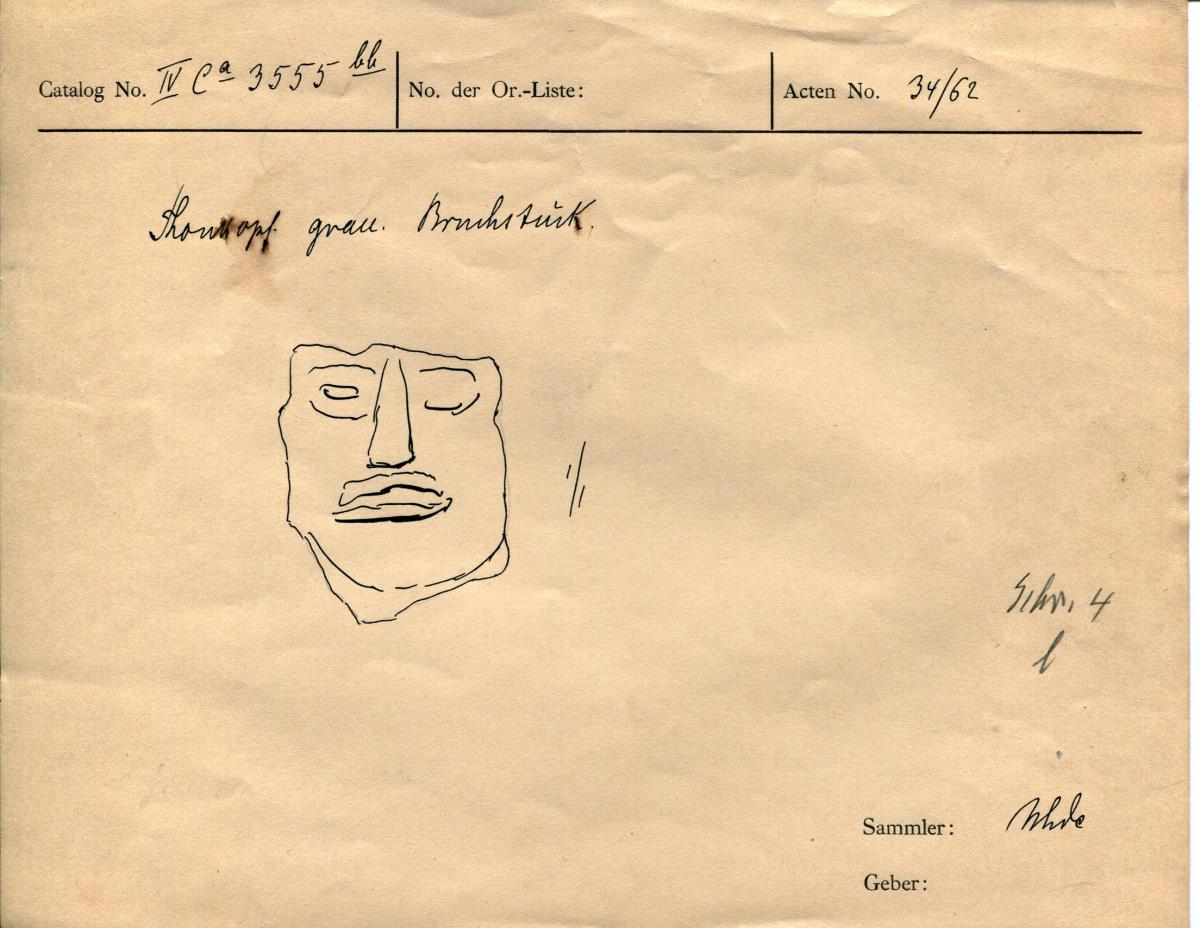 Catalog No. IV Ca 3555 bb
No. der Or.-Liste:
Acten No. 34/62
Thonkopf. grau. Bruchstück.
1/1
Schr. 4
l
Sammler: Uhde
Geber: